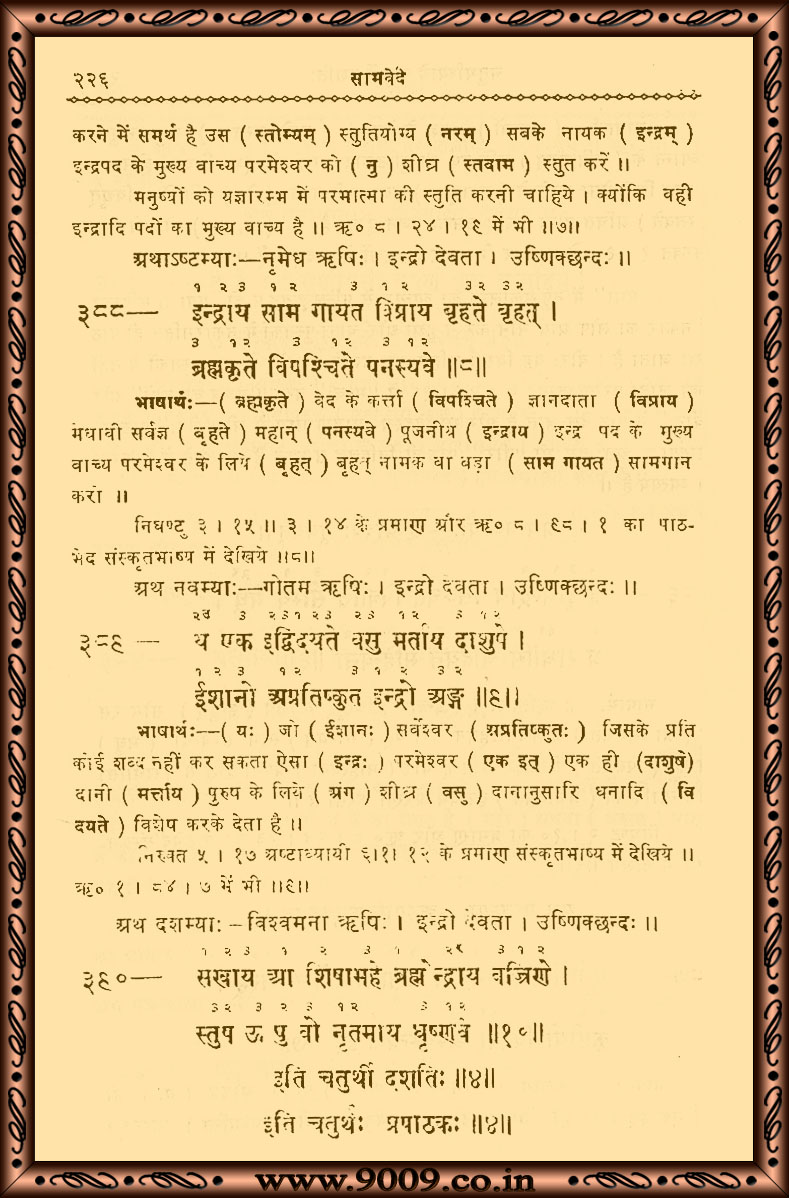 २२६ सामवेदे
करने में समर्थ है उस ( स्तोम्यम् ) स्तुतियोग्य ( नरम् ) सबके नायक ( इन्द्रम् )
इन्द्रपद के मुख्य वाच्य परमेश्वर को ( नु ) शीघ्र ( स्तवाम ) स्तुत करें ॥
मनुष्यों को यज्ञारम्भ में परमात्मा की स्तुति करनी चाहिये । क्योंकि वही
इन्द्रादि पदों का मुख्य वाच्य है ॥ ऋ० ८ । २४ । १९ में भी ॥७॥
अथाऽष्टम्याः—नृमेध ऋषिः । इन्द्रो देवता । उष्णिक्छन्दः ॥
१ २ ३ १ २ ३ १ २ ३२ ३२
३८८— इन्द्राय साम गायत विप्राय बृहते बृहत् ।
३ १२ ३ १२ ३ १२
ब्रह्मकृते विपश्चिते पनस्यवे ॥८॥
भाषार्थः—( ब्रह्मकृते ) वेद के कर्त्ता ( विपश्चिते ) ज्ञानदाता ( विप्राय )
मेधावी सर्वज्ञ ( बृहते ) महान् ( पनस्यवे ) पूजनीय ( इन्द्राय ) इन्द्र पद के मुख्य
वाच्य परमेश्वर के लिये ( बृहत् ) बृहत् नामक वा बड़ा ( साम गायत ) सामगान
करो ॥
निघण्टु ३ । १५ ॥ ३ । १४ के प्रमाण और ऋ० ८ । ९८ । १ का पाठ-
भेद संस्कृतभाष्य में देखिये ॥८॥
अथ नवम्याः—गोतम ऋषिः । इन्द्रो देवता । उष्णिक्छन्दः ॥
३ २३१२३ २३ १२ ३ १२
३८९ — य एक इद्विदयते वसु मर्ताय दाशुषे ।
१ २ ३ १२ ३ १ २ ३ २
ईशानो अप्रतिष्कुत इन्द्रो अङ्ग ॥९॥
भाषार्थः—( यः ) जो ( ईशानः ) सर्वेश्वर ( अप्रतिष्कुतः ) जिसके प्रति
कोई शब्द नहीं कर सकता ऐसा ( इन्द्रः ) परमेश्वर ( एक इत् ) एक ही (दाशुषे)
दानी ( मर्त्ताय ) पुरुष के लिये ( अंग ) शीघ्र ( वसु ) दानानुसारि धनादि ( वि
दयते ) विशेष करके देता है ॥
निरुक्त ५ । १७ अष्टाध्यायी ६।१। १२ के प्रमाण संस्कृतभाष्य में देखिये ॥
ऋ० १ । ८४ । ७ में भी ॥९॥
अथ दशम्याः –विश्वमना ऋषिः । इन्द्रो देवता । उष्णिक्छन्दः ॥
१ २ ३ १ २ ३ १ ३ १ २
३९०— सखाय आ शिषामहे ब्रह्मेन्द्राय वज्रिणे ।
३२ ३ २ ३ १२ ३ १२
स्तुष ऊ षु वो नृतमाय धृष्णवे ॥१०॥
इति चतुर्थी दशतिः ॥४॥
इति चतुर्थः प्रपाठकः ॥४॥
www.9009.co.in